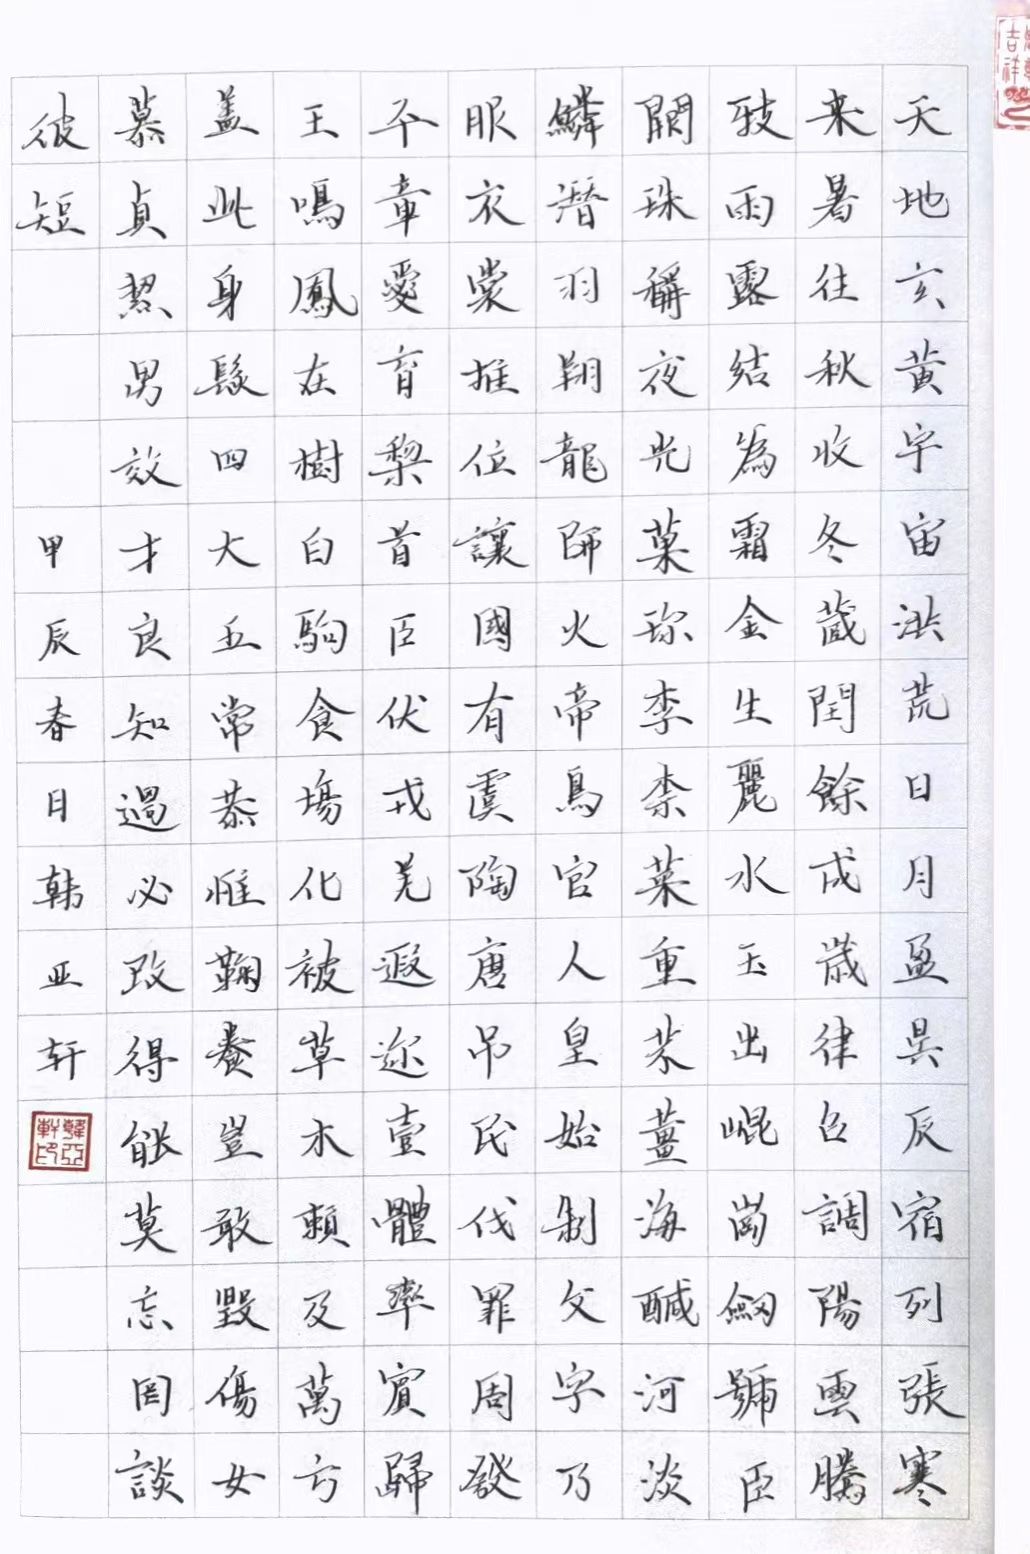 天地玄黃宇宙洪荒日月盈昃辰宿列張寒
来暑往秋收冬藏閏餘成歲律召調陽雲騰
致雨露結為霜金生麗水玉出崐崗劒號巨
闕珠稱夜光菓珍李柰菜重芥薑海醎河淡
鱗潛羽翔龍師火帝鳥官人皇始制文字乃
服衣裳推位讓國有虞陶唐吊民伐罪周發
平章愛育黎首臣伏戎羌遐迩壹體率賓歸
王鳴鳳在樹白駒食場化被草木賴及萬方
盖此身髮四大五常恭惟鞠養豈敢毀傷女
慕貞絜男效才良知過必改得能莫忘罔談
彼短
甲辰春日韩亚轩
韓亞軒印
吉祥